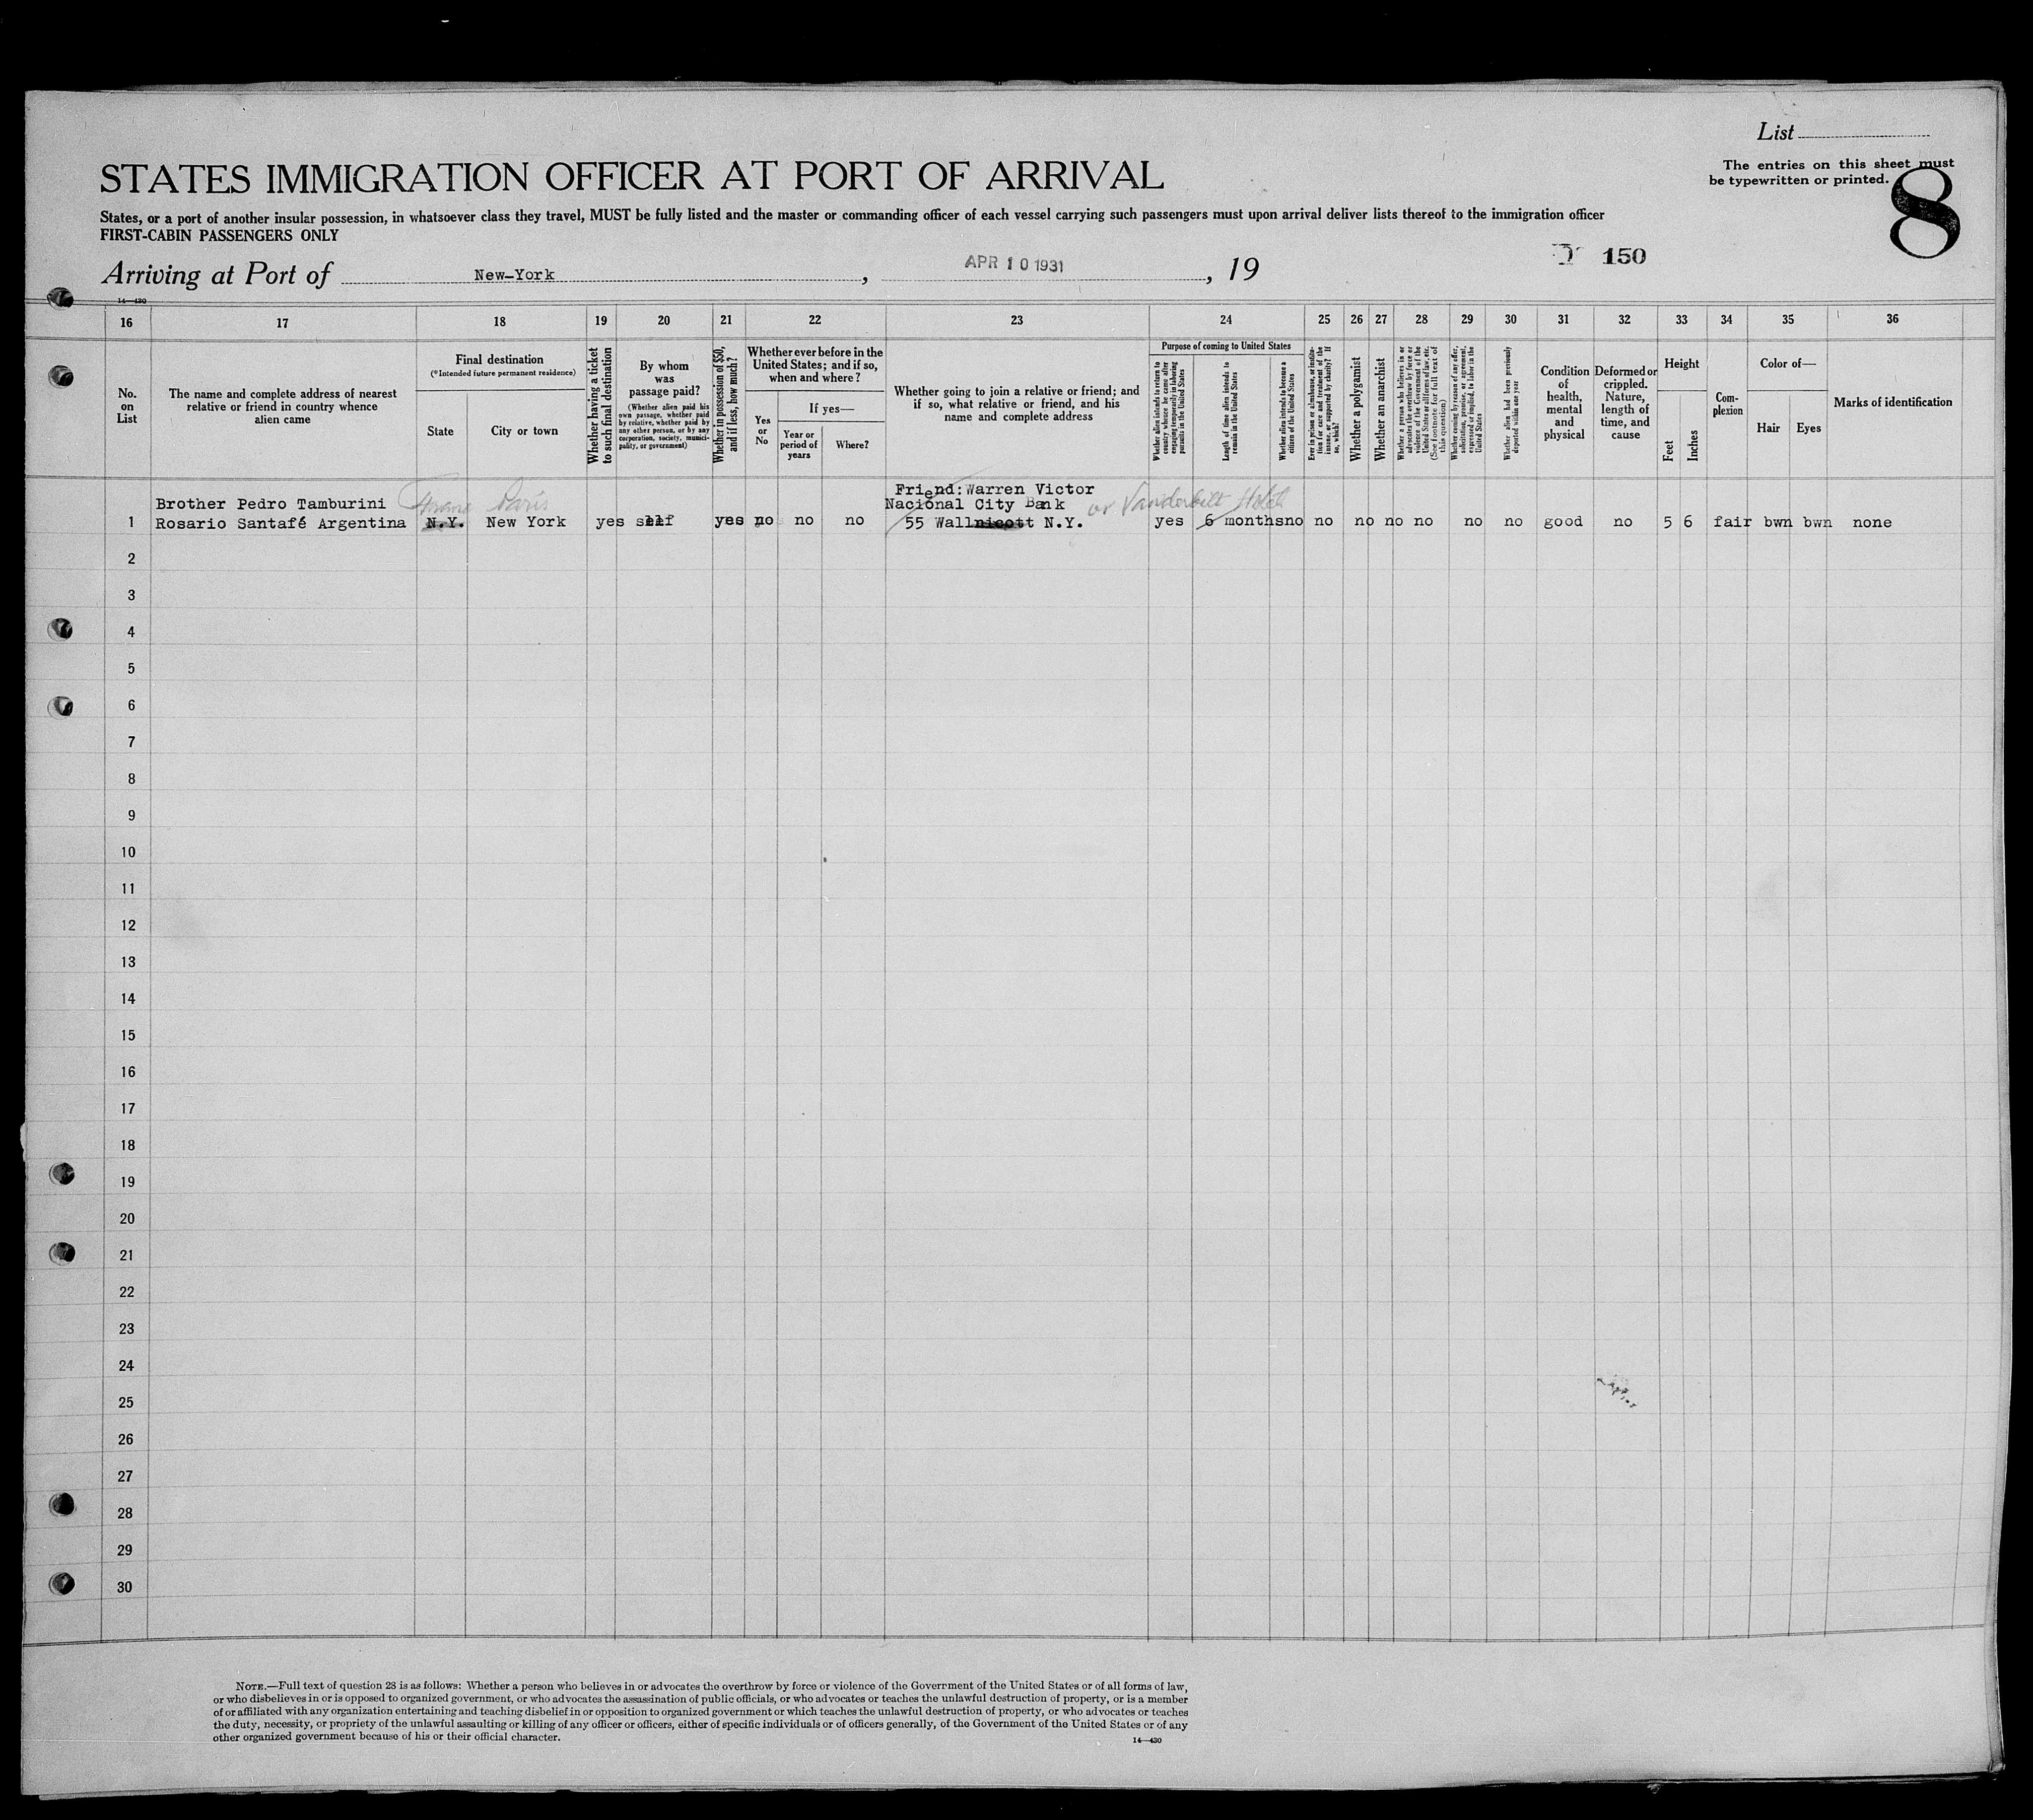 List
STATES IMMIGRATION OFFICER AT PORT OF ARRIVAL
The entries on this sheet must
be typewritten or printed.
8
States, or a port of another insular possession, in whatsoever class they travel, MUST be fully listed and the master or commanding officer of each vessel carrying such passengers must upon arrival deliver lists thereof to the immigration officer
FIRST-CABIN PASSENGERS ONLY
150
Arriving at Port of New-York, APR 10 1931, 19
14—430
16 17 18 19 20 21 22 23 24 25 26 27 28 29 30 31 32 33 34 35 36
No.
on
List
The name and complete address of nearest
relative or friend in country whence
alien came
Final destination
(*Intended future permanent residence)
State
City or town
Whether having a ticket
to such final destination
By whom
was
passage paid?
(Whether alien paid his
own passage, whether paid
by relative, whether paid by
any other person, or by any
corporation, society, munici-
pality, or government)
Whether in possession of $50,
and if less, how much?
Whether ever before in the
United States; and if so,
when and where?
Yes
or
No
If yes—
Year or
period of
years
Where?
Whether going to join a relative or friend; and
if so, what relative or friend, and his
name and complete address
Purpose of coming to United States
Whether alien intends to return to
country whence he came after
engaging temporarily in laboring
pursuits in the United States
Length of time alien intends to
remain in the United States
Whether alien intends to become a
citizen of the United States
Ever in prison or almshouse, or institu-
tion for care and treatment of the
insane, or supported by charity? If
so, which?
Whether a polygamist
Whether an anarchist
Whether a person who believes in or
advocates the overthrow by force or
violence of the Government of the
United States or all forms of law, etc.
(See footnote for full text of
this question)
Whether coming by reason of any offer,
solicitation, promise, or agreement,
expressed or implied, to labor in the
United States
Whether alien had been previously
deported within one year
Condition
of
health,
mental
and
physical
Deformed or
crippled.
Nature,
length of
time, and
cause
Height
Feet
Inches
Com-
plexion
Color of—
Hair
Eyes
Marks of identification
Brother Pedro Tamburini
Paris
Friend: Warren Victor
Nacional City Bank
or Vanderbilt Hotel
1 Rosario Santafé Argentina N.Y. New York yes self yes no no no 55 Wall N.Y. yes 6 months no no no no no no no good no 5 6 fair bwn bwn none
2
3
4
5
6
7
8
9
10
11
12
13
14
15
16
17
18
19
20
21
22
23
24
25
26
27
28
29
30
NOTE.—Full text of question 28 is as follows: Whether a person who believes in or advocates the overthrow by force or violence of the Government of the United States or of all forms of law,
or who disbelieves in or is opposed to organized government, or who advocates the assassination of public officials, or who advocates or teaches the unlawful destruction of property, or is a member
of or affiliated with any organization entertaining and teaching disbelief in or opposition to organized government or which teaches the unlawful destruction of property, or who advocates or teaches
the duty, necessity, or propriety of the unlawful assaulting or killing of any officer or officers, either of specific individuals or of officers generally, of the Government of the United States or of any
other organized government because of his or their official character.
14—430